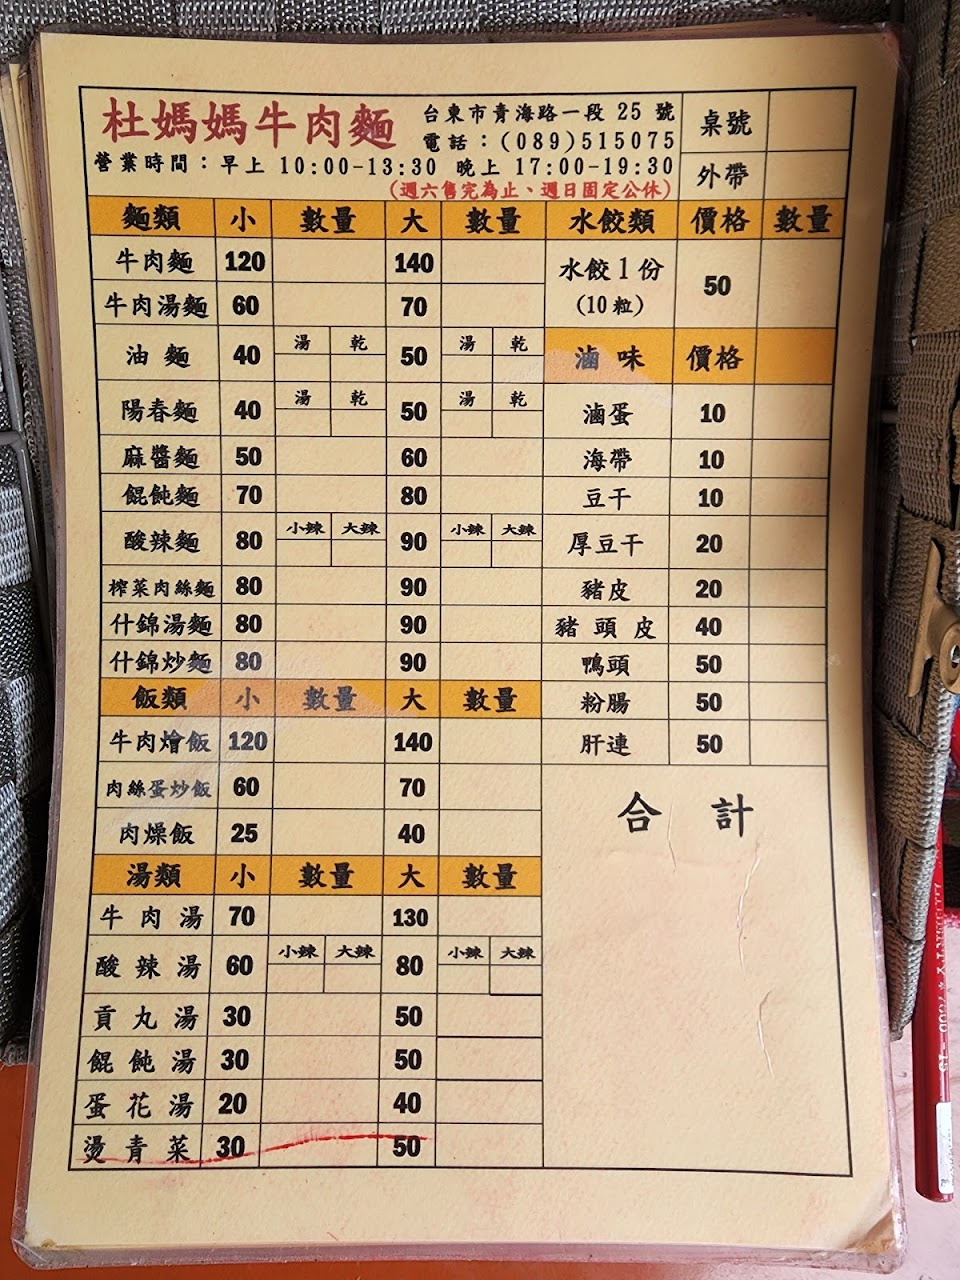 杜媽媽牛肉麵
台東市青海路一段 25 號
電話：(089)515075
營業時間：早上 10:00-13:30 晚上 17:00-19:30
(週六售完為止、週日固定公休)
桌號
外帶
麵類 小 數量 大 數量
牛肉麵 120 140
牛肉湯麵 60 70
油麵 40 湯 乾 50 湯 乾
陽春麵 40 湯 乾 50 湯 乾
麻醬麵 50 60
餛飩麵 70 80
酸辣麵 80 小辣 大辣 90 小辣 大辣
榨菜肉絲麵 80 90
什錦湯麵 80 90
什錦炒麵 80 90
飯類 小 數量 大 數量
牛肉燴飯 120 140
肉絲蛋炒飯 60 70
肉燥飯 25 40
湯類 小 數量 大 數量
牛肉湯 70 130
酸辣湯 60 小辣 大辣 80 小辣 大辣
貢丸湯 30 50
餛飩湯 30 50
蛋花湯 20 40
燙青菜 30 50
水餃類 價格 數量
水餃1份 50
(10粒)
滷味 價格
滷蛋 10
海帶 10
豆干 10
厚豆干 20
豬皮 20
豬頭皮 40
鴨頭 50
粉腸 50
肝連 50
合計